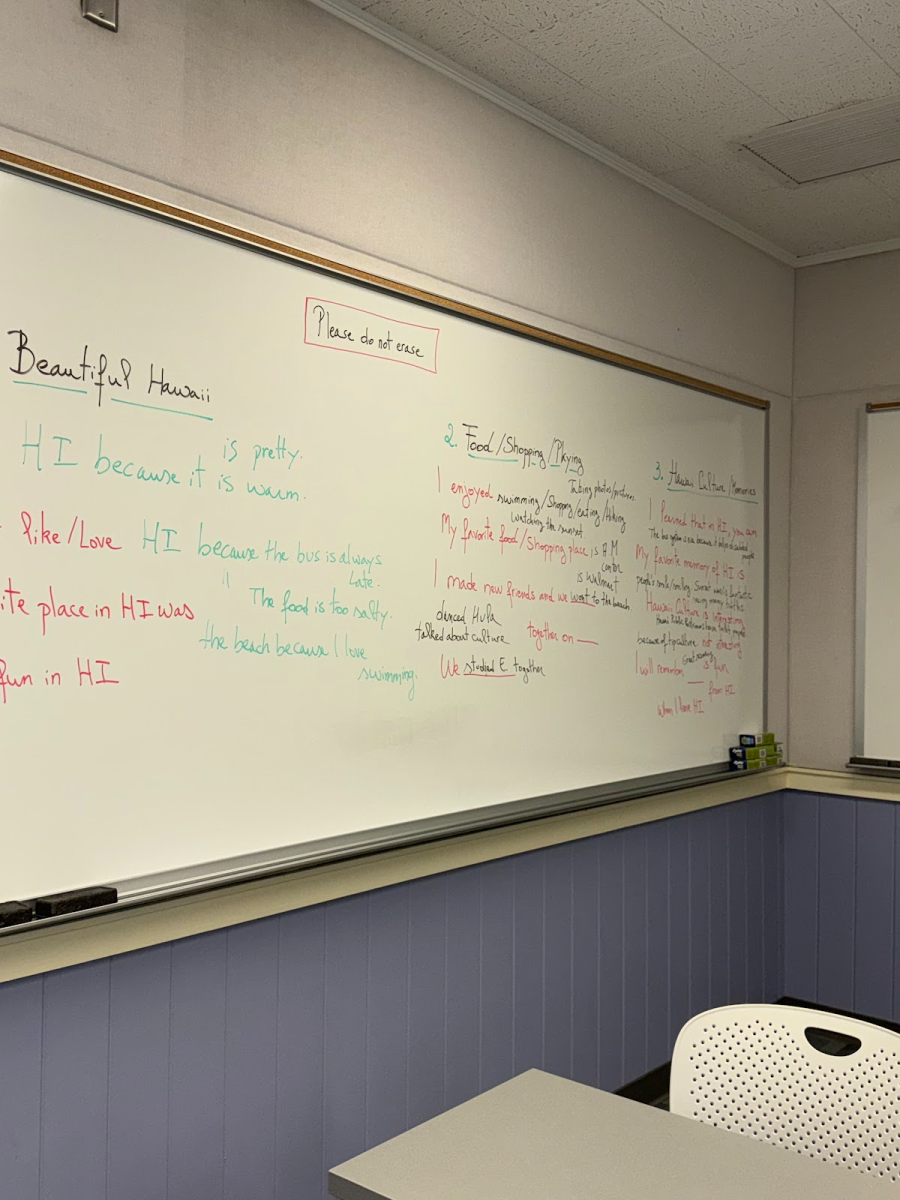 Please do not erase
Beautiful Hawaii
is pretty.
HI because it is warm.
like/Love HI because the bus is always
late.
" The food is too salty.
place in HI was
the beach because I love
swimming.
fun in HI
2. Food/Shopping/Plaing
Taking photos/pictures
I enjoyed swimming/Shopping/eating/hiking
watching the sunset
My favorite food/Shopping place is A.M
center
is Walmart
I made new friends and we went to the beach
danced Hula
talked about culture together on ___
We studied E. together
3. Hawaii Culture/Memories
I learned that in HI, you can
The bus system is because it helps disabled
people
My favorite memory of HI is
people's smiling Sunset was fantastic
Hawaii Culture is interesting
because of culture not
I will remember ___ is fun
from HI
when I leave HI